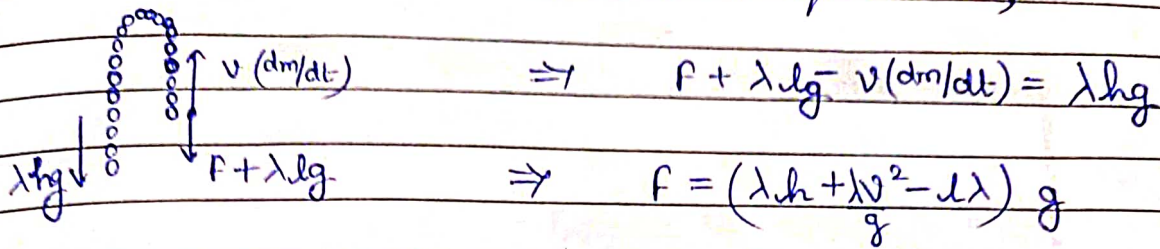 v (dm/dt) ⇒ F + λlg - v(dm/dt) = λhg
λhg F + λlg ⇒ F = (λh + λv²/g - lλ) g